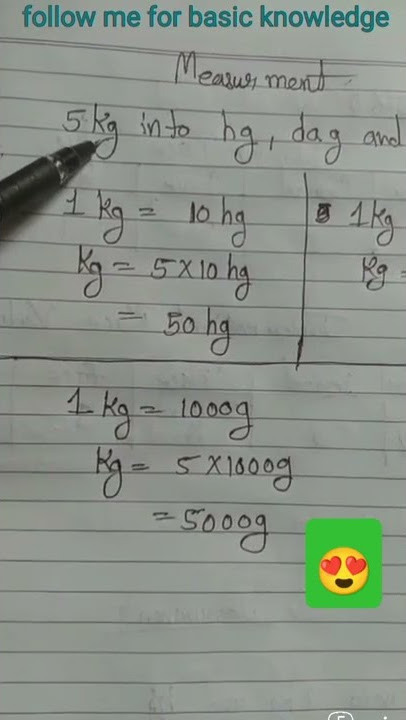 follow me for basic knowledge
Measurment
5 kg into hg, dag and
1 kg = 10 hg
kg = 5×10 hg
= 50 hg
1kg
kg =
1 kg = 1000g
kg = 5×1000g
= 5000g